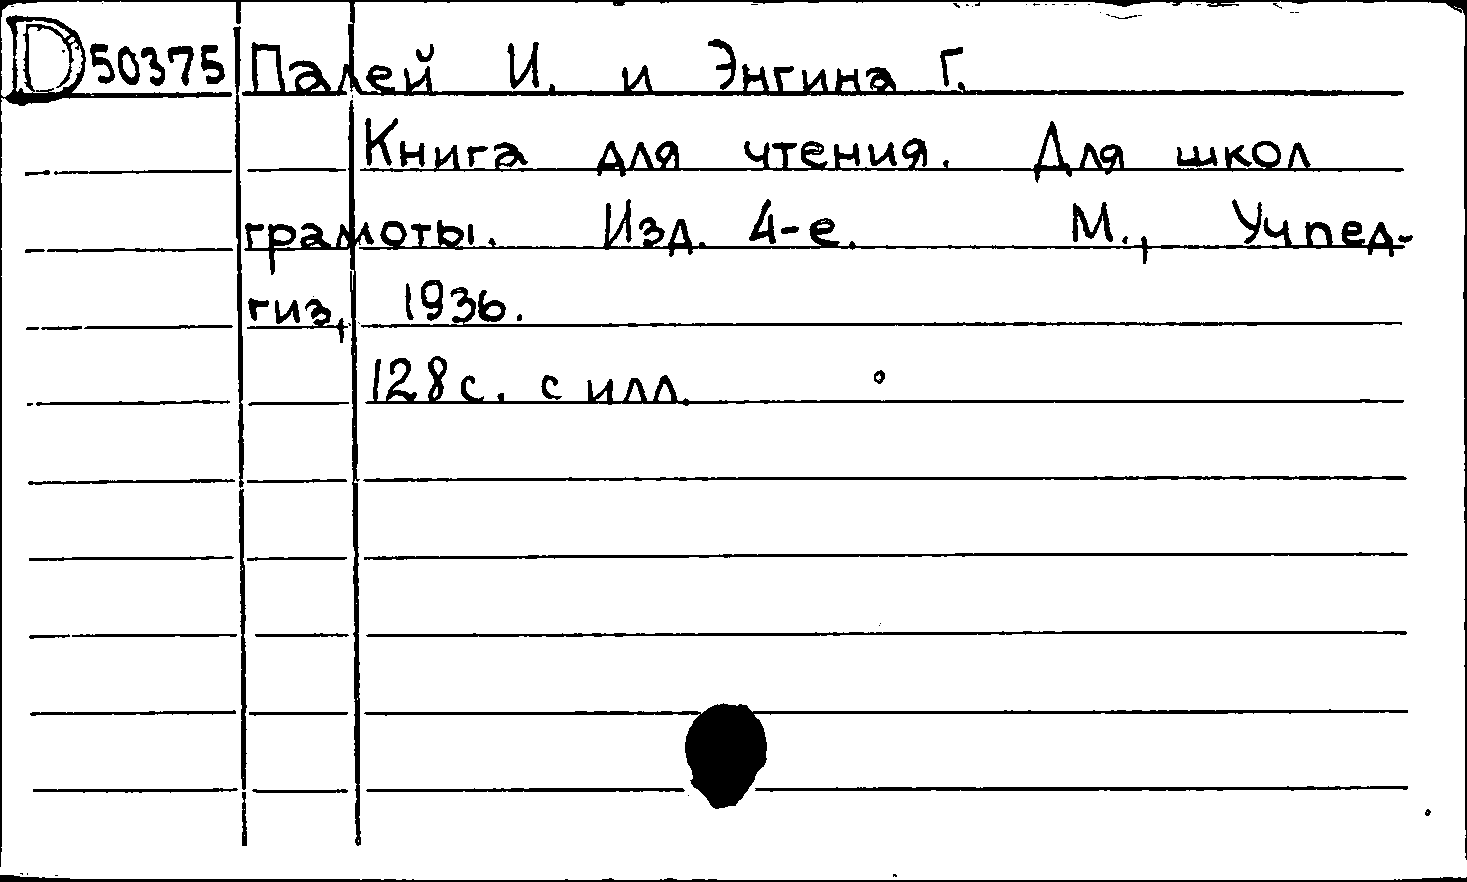 D 50375 Палей И. и Энгина Г.
Книга для чтения. Для школ
грамоты. Изд. 4-е. М., Учпед-
гиз, 1936.
128 с. с илл.